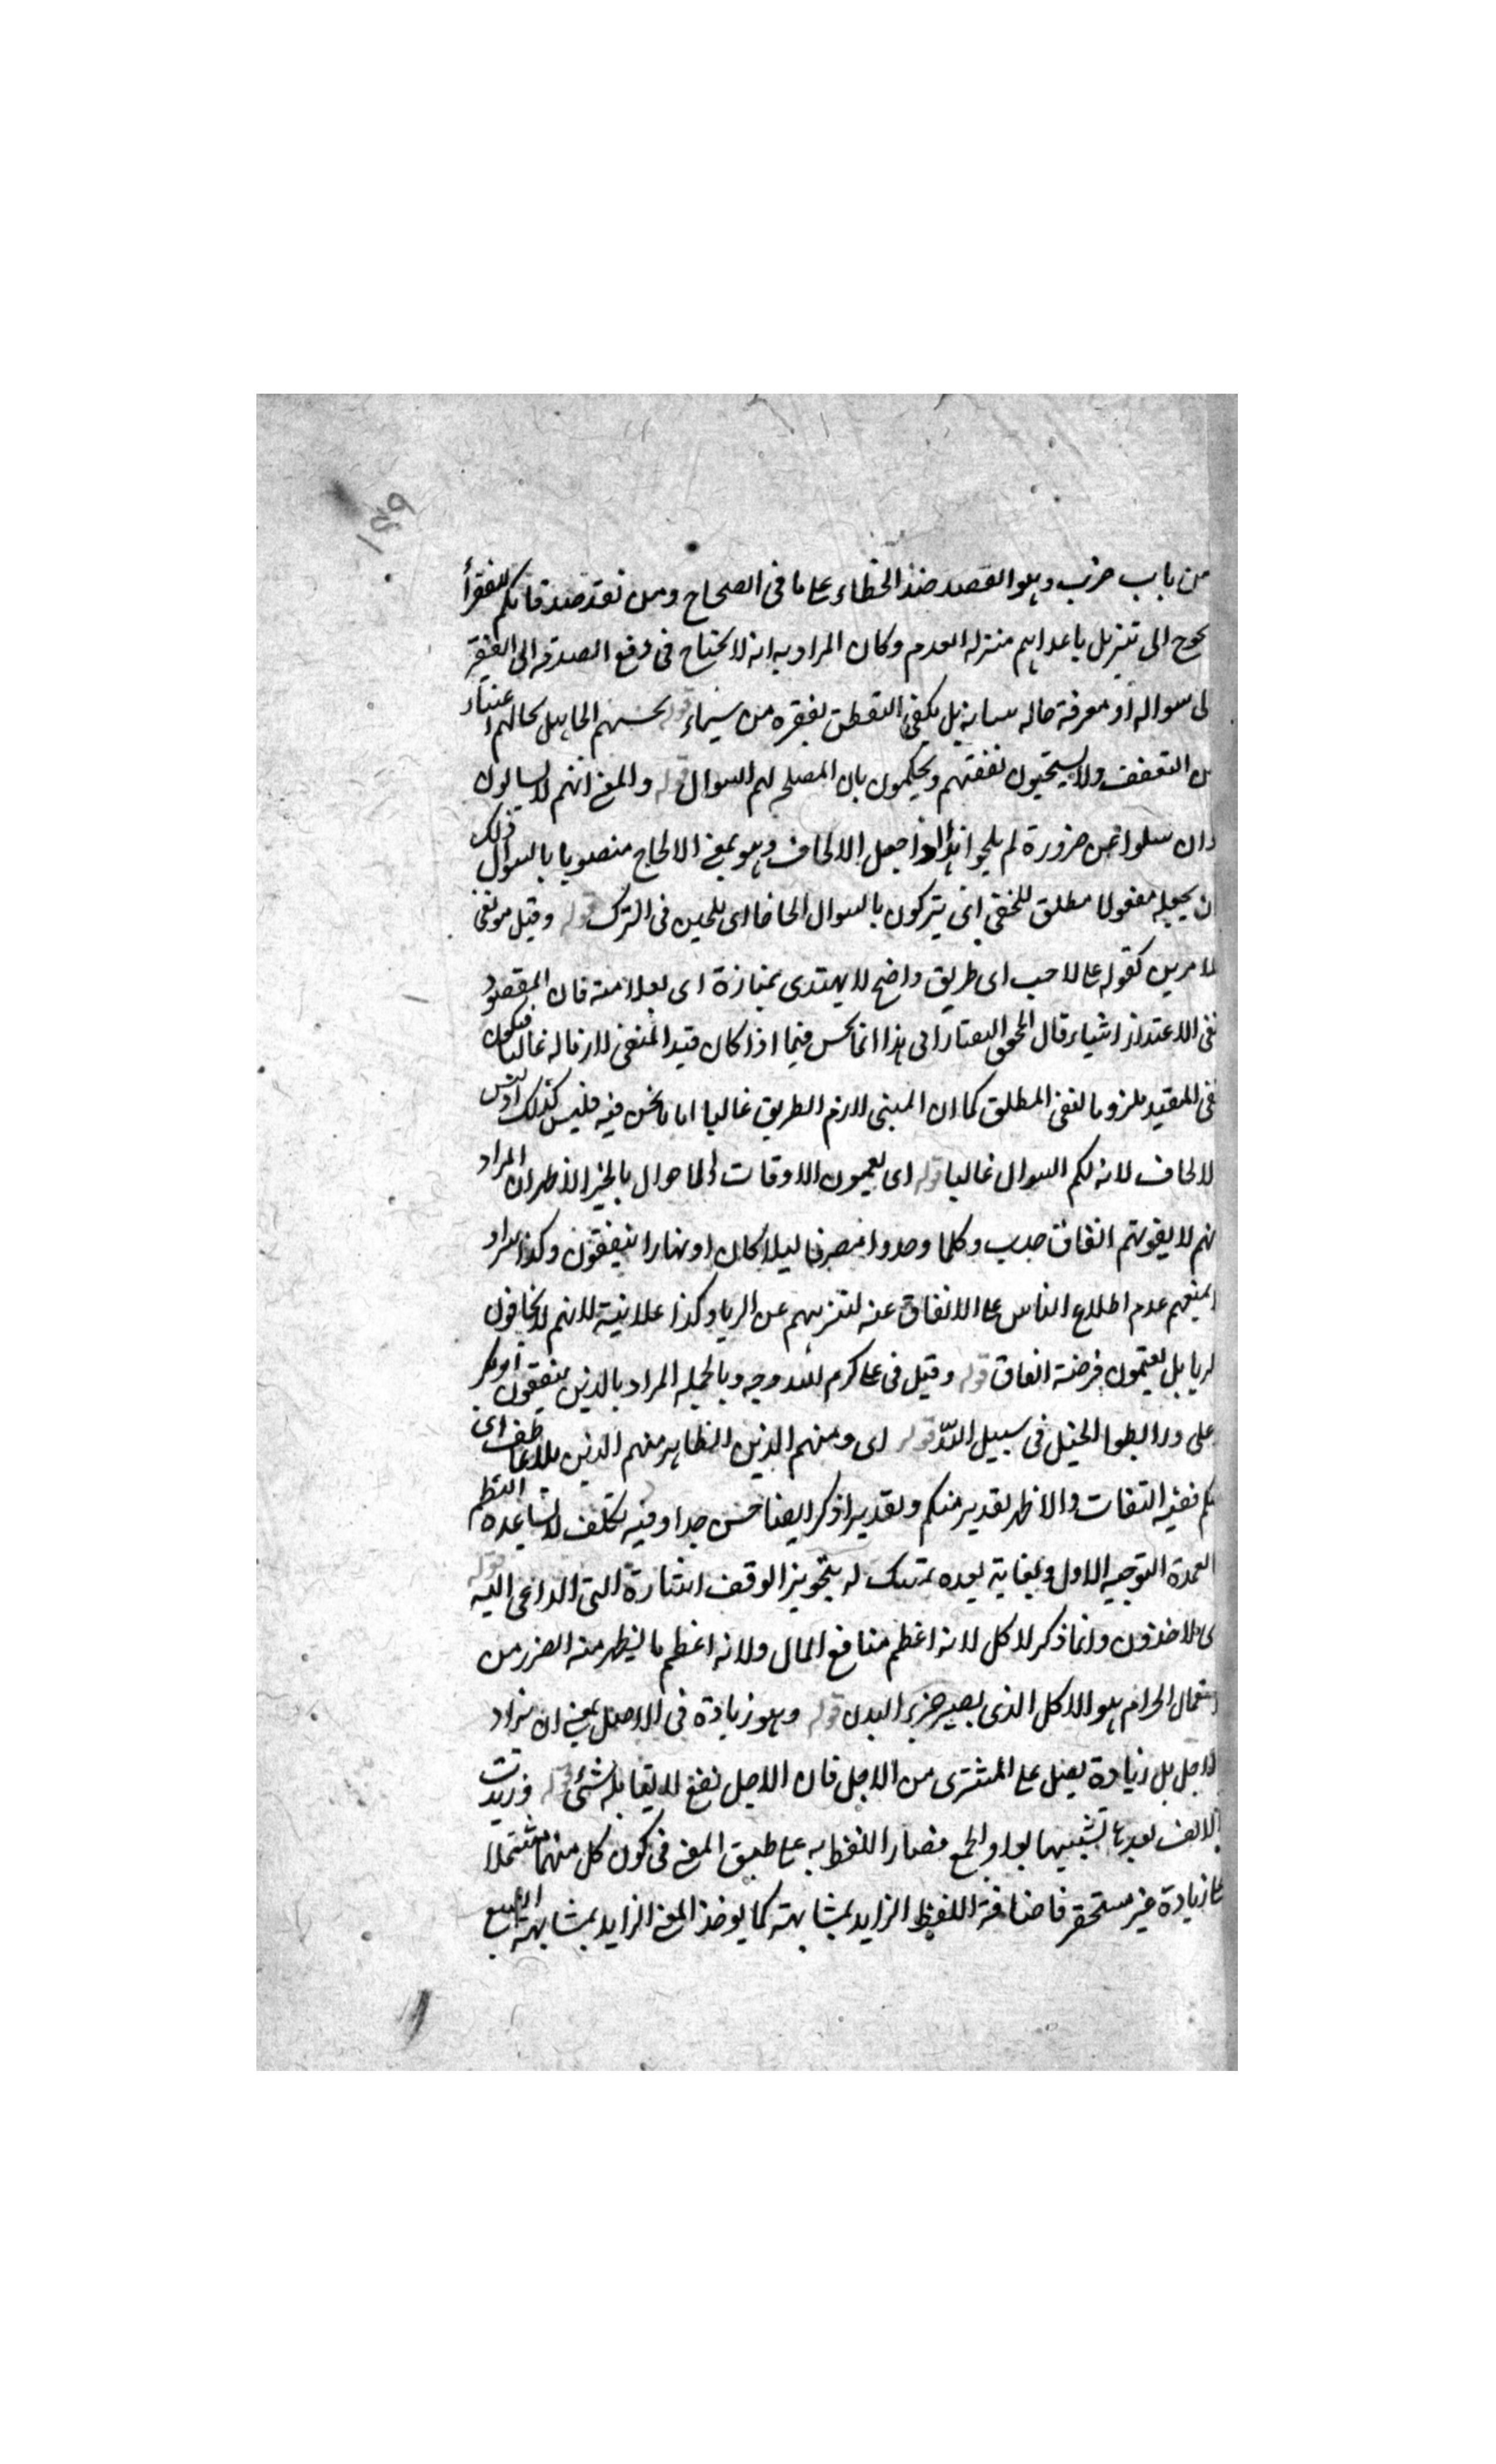 ١٤٩
من باب ضرب وهو القصد ضد الخطاء على ما فى الصحاح ومن نقد صدقاتكم للفقرأ
يحوج الى تنزيل ما عداهم منزلة العدم وكان المراد به انه لا يحتاج فى دفع الصدقه الى الفقير
لى سواله أو معرفة حاله بل يكفى التفطن بفقره من سيماء قوله يحسبهم الجاهل بحالهم اغنياء
من التعفف ولا يستحيون نفقتهم ويحكمون بان المصلح لهم السوال قوله والمعنى انهم لا يسالون
وان سالوا عن ضرورة لم يلحوا هذا اذا جعل الالحاف وهو بمعنى الالحاح منصوبا بالسوال ذلك
ان يجعله مفعولا مطلق للخفى اى يتركون بالسوال الحافا اى ملحين فى الترك قوله وقيل هو نفى
للامرين كقوله على لاحب اى طريق واضح لا يهتدى بمنازة اى بعلا منه فان المقصود
نفى قال المحقق التفتازانى هذا انما يحسن فيما اذا كان قيد المنفى لازما له غالبا فيكون
نفى المقيد ملزوما لنفى المطلق كما ان المبنى لازم الطريق غالبا اما ما نحن فيه فليس كذلك اذ ليس
الالحاف لازم السوال غالبا قوله اى يعمون الاوقات والاحوال بالخير الاظهر ان المراد
انهم لا يفوتهم انفاق وكلما وجدوا مصرفا ليلا كان او نهارا ينفقون وكذا المراد
يمنعهم عدم اطلاع الناس على الانفاق عنه لتنزههم عن الريا وكذا علانية لانهم لا يخافون
الريا بل يغتنمون فرصة انفاق قوله وقيل فى على كرم الله وجه وبالجمله المراد بالذين ينفقون ابوبكر
وعلى ورابطوا الخيل فى سبيل الله قوله اى ومنهم الذين الظاهر منهم الذين بلا عاطف اى
منكم ففيه التفات والاظهر تقدير منكم وتقدير اذكر ايضا حسن جدا وفيه تكلف لا يساعده النظم
العمدة التوجيه الاول ولغاية بعده تمسك له بتجويز الوقف اشارة التى الداعى اليه قوله
اى الاخذون وانما ذكر الاكل لانه اعظم منافع المال ولانه اعظم ما يظهر منه الضرر من
استعمال الحرام هو الاكل الذى يصير جزء البدن قوله وهو زيادة فى الاصل بمعنى ان يزاد
لاجل بل زيادة على المشترى من الاجل فان الاجل نفع لا يقابله شئ قوله وزيدت
الالف بعدها تشبيها بواو الجمع فصار اللفظ به على طبق المعنى فى كون كل منهما مشتملا
على زيادة غير مستحقه فاضافة اللفظ الزايد بمشابهته كما يوخذ المعنى الزايد بمشابهته البيع